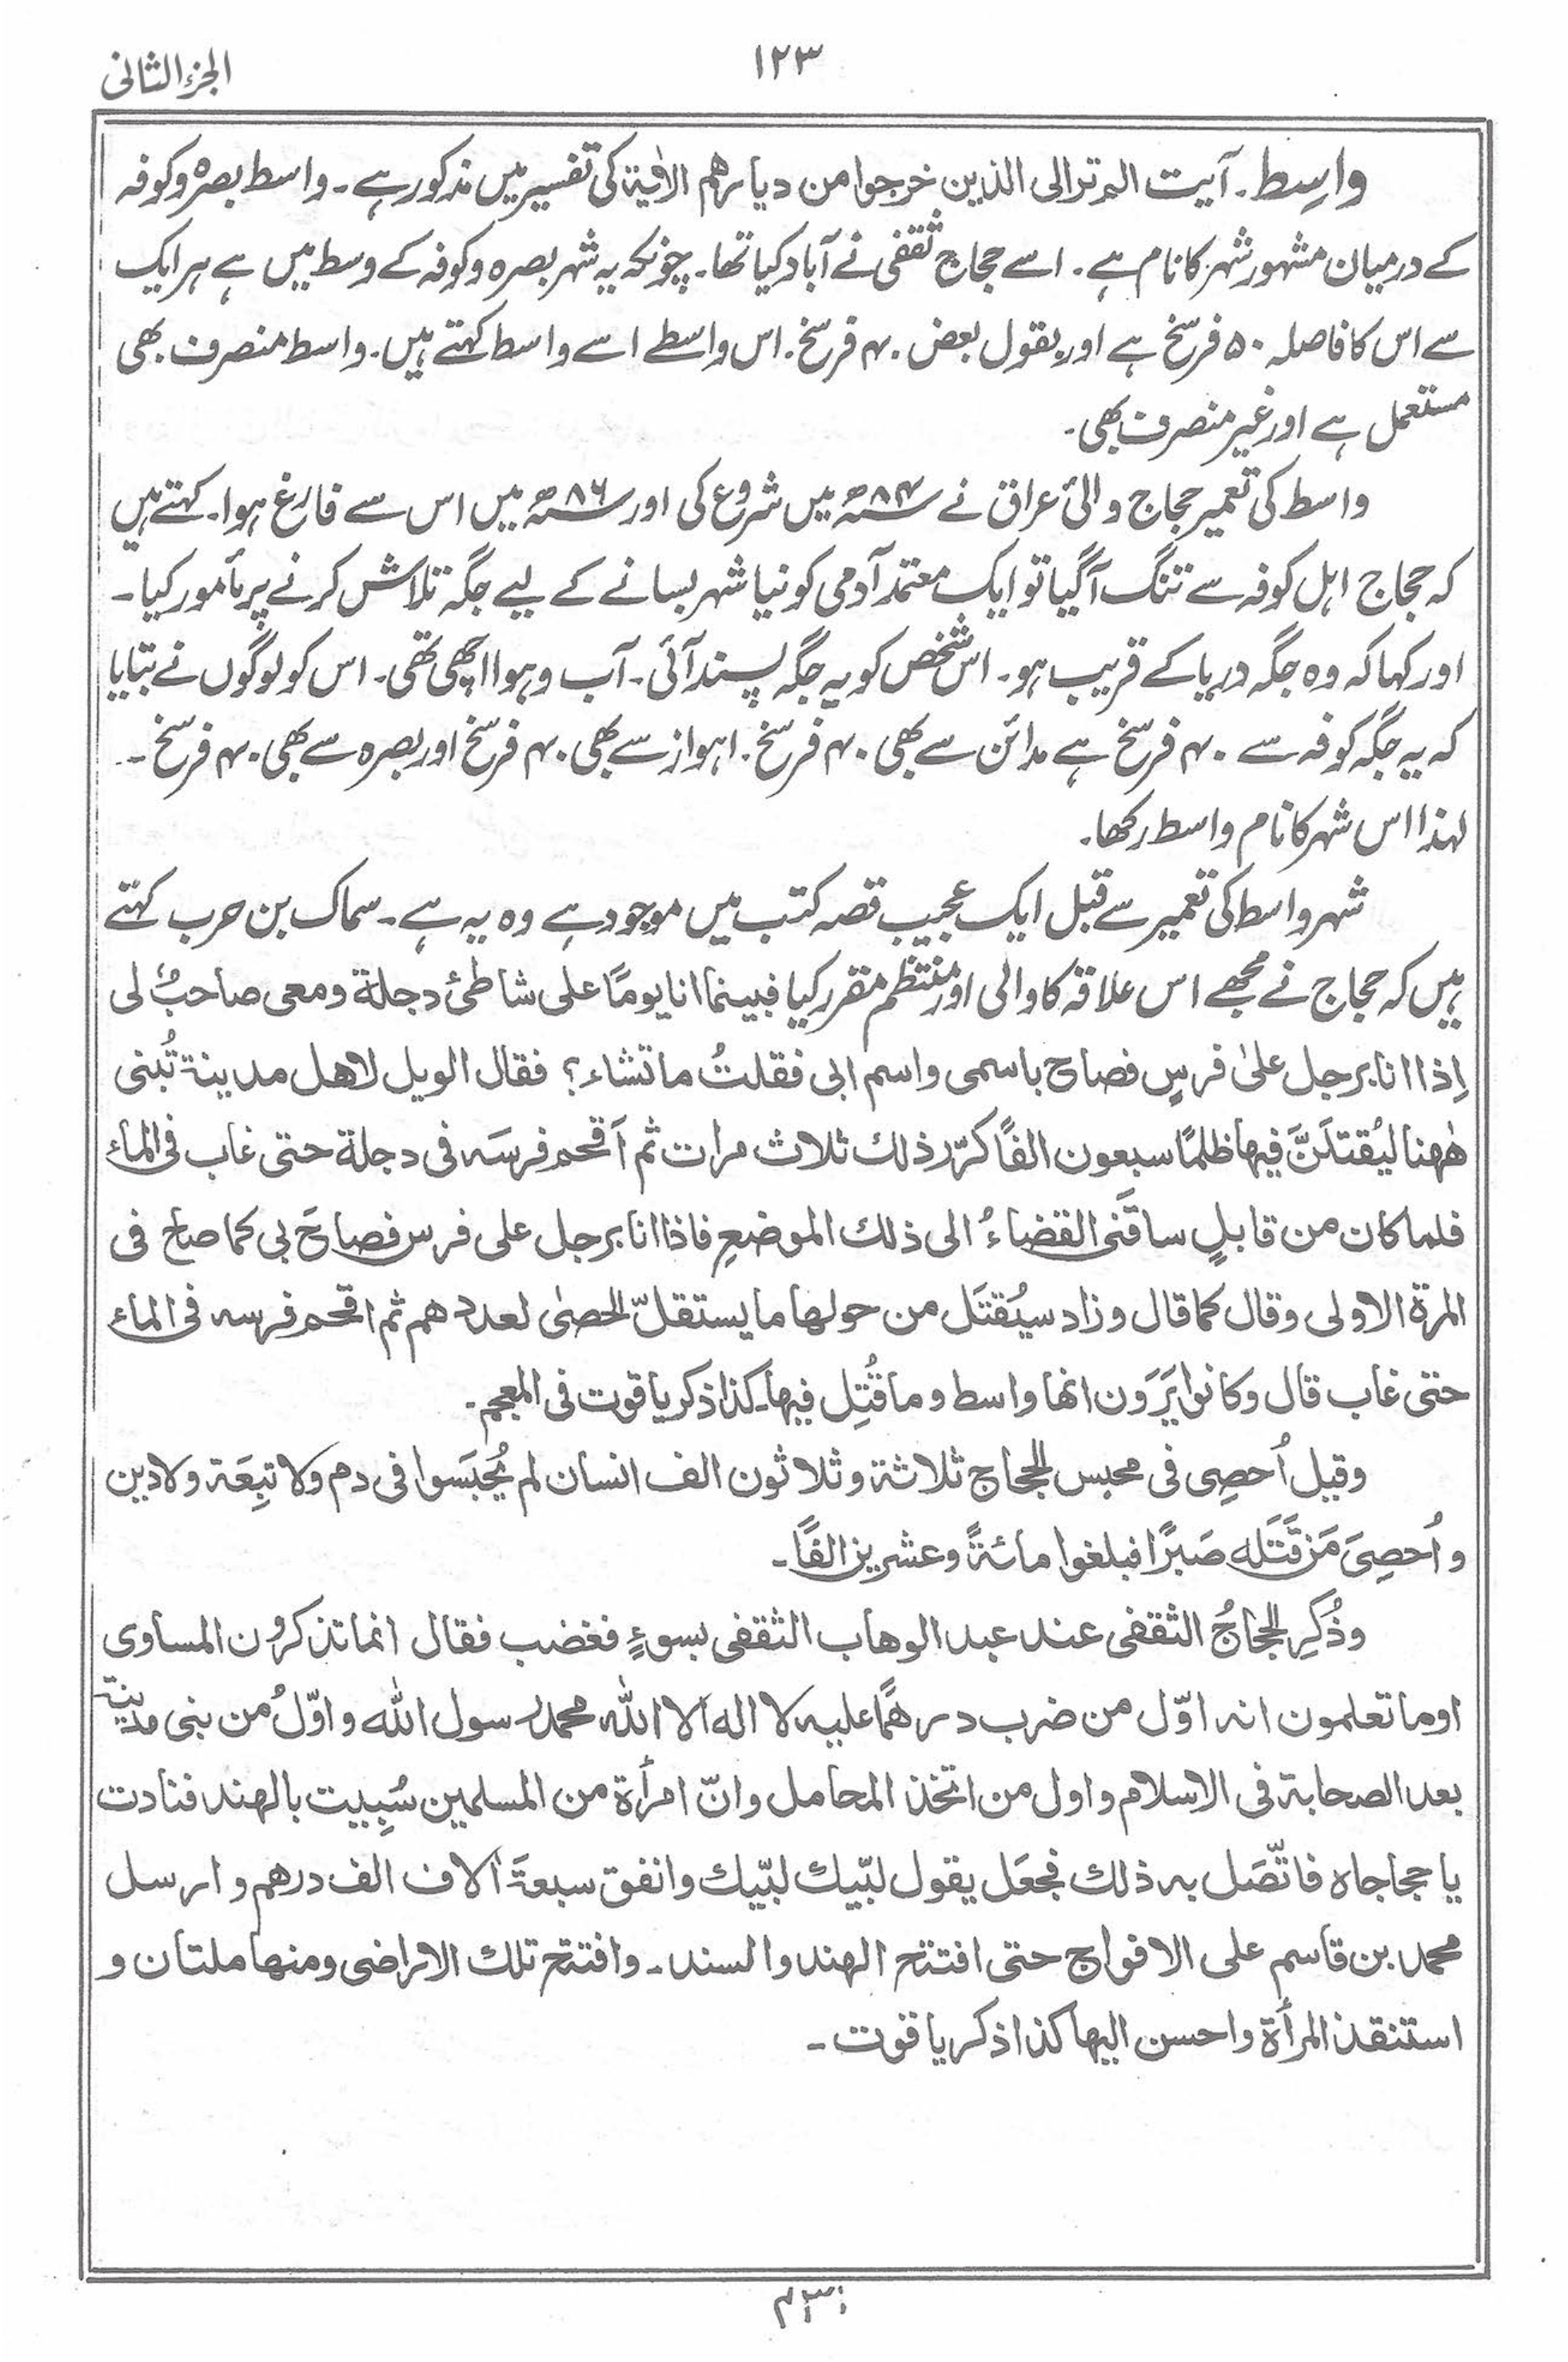 الجزء الثانی
۱۲۳
واسِط۔ آیت الم تر الی الذین خرجوا من دیارهم الاٰیة کی تفسیر میں مذکور ہے۔ واسط بصرہ و کوفہ
کے درمیان مشہور شہر کا نام ہے۔ اسے حجاج ثقفی نے آباد کیا تھا۔ چونکہ یہ شہر بصرہ و کوفہ کے وسط میں ہے ہر ایک
سے اس کا فاصلہ ۵۰ فرسخ ہے اور بقول بعض ۴۰ فرسخ۔ اس واسطے اسے واسط کہتے ہیں۔ واسط منصرف بھی
مستعمل ہے اور غیر منصرف بھی۔
واسط کی تعمیر حجاج والیٔ عراق نے ۸۴ھ میں شروع کی اور ۸۶ھ میں اس سے فارغ ہوا۔ کہتے ہیں
کہ حجاج اہل کوفہ سے تنگ آگیا تو ایک معتمد آدمی کو نیا شہر بسانے کے لیے جگہ تلاش کرنے پر مأمور کیا۔
اور کہا کہ وہ جگہ دریا کے قریب ہو۔ اس شخص کو یہ جگہ پسند آئی۔ آب و ہوا اچھی تھی۔ اس کو لوگوں نے بتایا
کہ یہ جگہ کوفہ سے ۴۰ فرسخ ہے مدائن سے بھی ۴۰ فرسخ۔ اہواز سے بھی ۴۰ فرسخ اور بصرہ سے بھی ۴۰ فرسخ۔
لہذا اس شہر کا نام واسط رکھا۔
شہر واسط کی تعمیر سے قبل ایک عجیب قصہ کتب میں موجود ہے وہ یہ ہے۔ سماک بن حرب کہتے
ہیں کہ حجاج نے مجھے اس علاقہ کا والی اور منتظم مقرر کیا فبینما انا یومًا علی شاطئ دجلة ومعی صاحبٌ لی
اِذا انا برجل علیٰ فرسٍ فصاح باسمی واسم ابی فقلتُ ما تشاء؟ فقال الویل لاهل مدینة تُبنی
هٰهنا لیُقتلَنَّ فیها ظلمًا سبعون الفًا کرّر ذلك ثلاث مرات ثم اَقحم فرسَه فی دجلة حتی غاب فی الماء
فلما کان من قابلٍ ساقَنی القضاءُ الی ذلك الموضعِ فاذا انا برجل علی فرس فصاحَ بی کما صاح فی
المرّة الاولی وقال کما قال وزاد سیُقتَل من حولها ما یستقلّ الحصیٰ لعددهم ثم اقحم فرسه فی الماء
حتی غاب قال وکانوا یَرَون انها واسط وما قُتِل فیها۔ کذا ذکر یاقوت فی المعجم۔
وقیل اُحصِی فی محبس الحجاج ثلاثة وثلاثون الف انسان لم یُحبَسوا فی دم ولا تبِعَة ولا دین
واُحصِیَ مَن قَتَله صَبرًا فبلغوا مائةً وعشرین الفًا۔
وذُکِر الحجاجُ الثقفی عند عبد الوهاب الثقفی بسوءٍ فغضب فقال انما تذکرون المساوی
اوما تعلمون انه اوّل من ضرب درهمًا علیه لا اله الا الله محمد رسول الله واوّلُ من بنی مدینة
بعد الصحابة فی الاسلام واول من اتخذ المحامل وانّ امرأة من المسلمین سُبِیت بالهند فنادت
یا حجاجاه فاتّصَل به ذلك فجعَل یقول لبّیك لبّیك وانفق سبعةَ اٰلاف الف درهم وارسل
محمد بن قاسم علی الافواج حتی افتتح الهند والسند۔ وافتتح تلك الاراضی ومنها ملتان و
استنقذ المرأة واحسن الیها کذا ذکر یاقوت۔